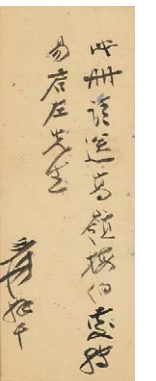 此冊請送高嶺梅伯處轉
易君左先生
爰拜干